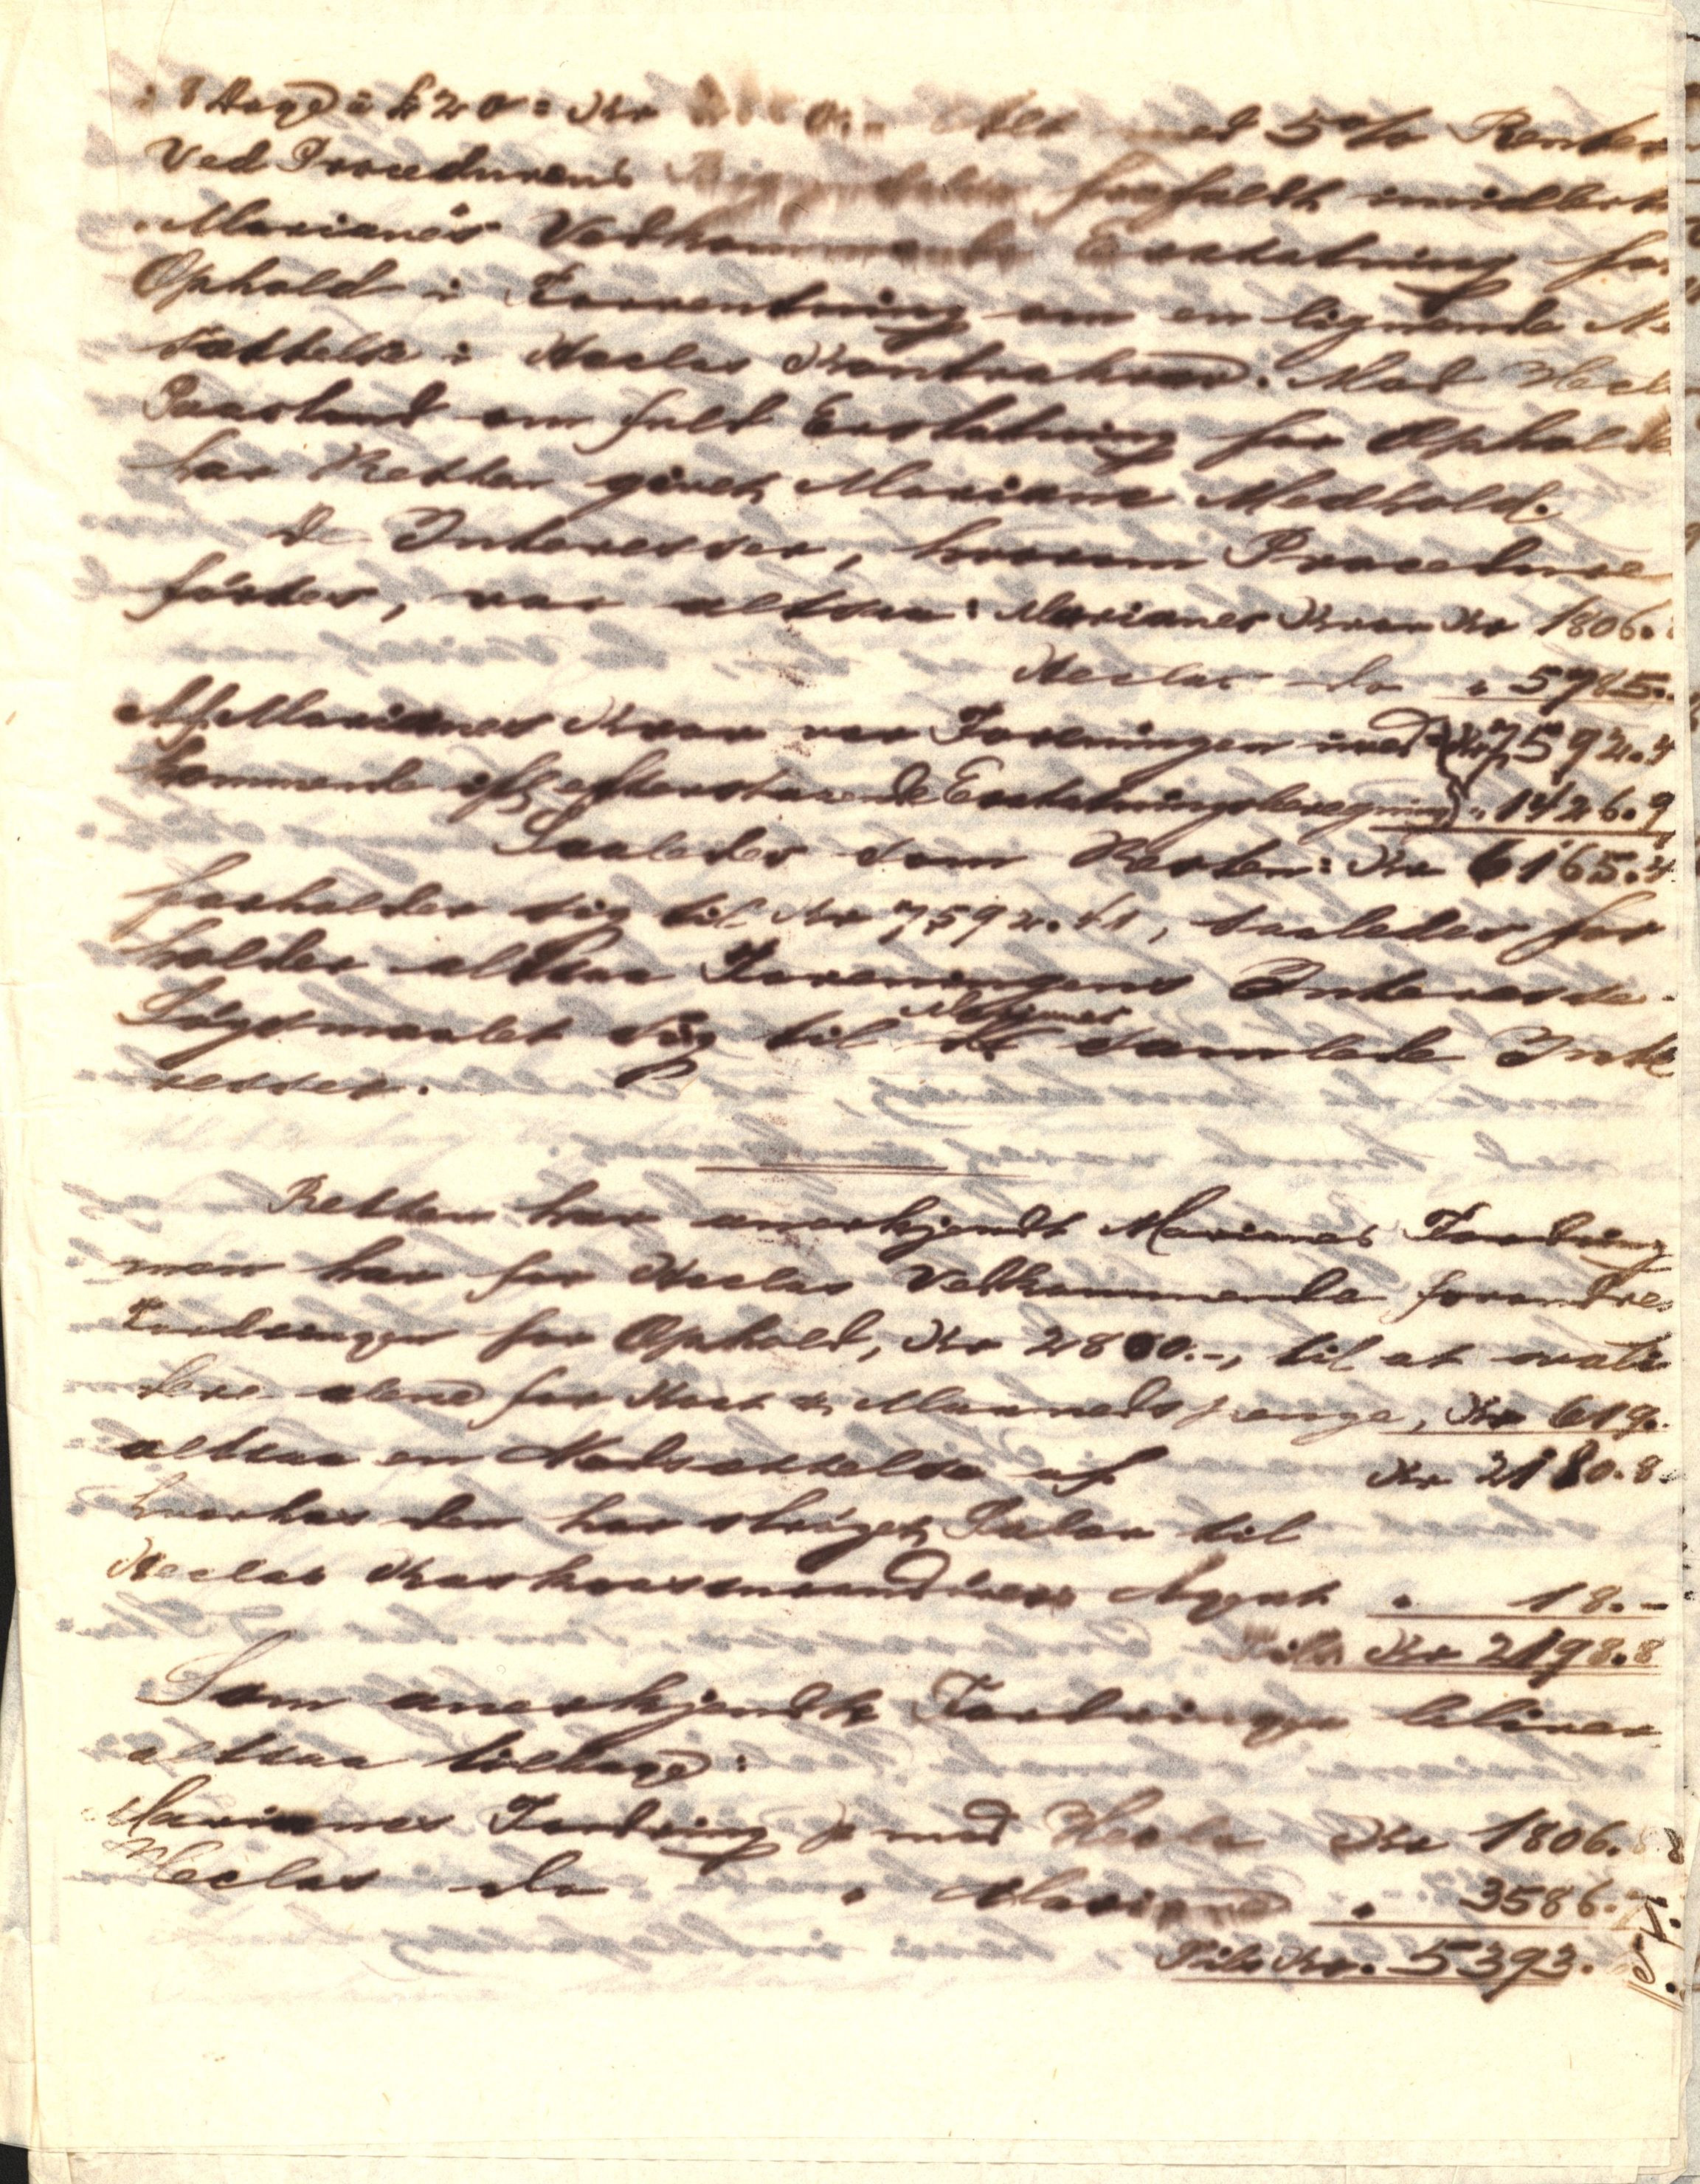 8 Dage à £ 20 = Kr Alt med 5% Renter
Ved Procedurens frafaldt imidlert
Marianes Vedkommende Erstatning for
Ophold i Forventning om en lignende Ne
sættelse i Heclas Kontrakrav. Mod Hecl
Paastand om fuld Erstatning for Ophold
har Retten givet Mariane Medhold.
De Interesser, hvorom Procedure
førtes, var altsaa: Marianes Krav Kr 1806.
Heclas do " 5785.
Af Marianes Krav var Foreningen ived Kr 7,592.4
kommende iflg efterstaaende Erstatningsberegning " 1426.9
Saaledes som Resten: Kr 6165.4
forholder sig til Kr 7,592.41, saaledes for
holder altsaa Foreningens Interesse
Søgsmaalet sig til Marianes samlede Inte
resser.
Retten har anerkjendt Marianes Fordring
men har for Heclas Vedkommende forandre
Fordringen for Ophold, Kr 2800.-, til at
dere alene for Kost & Maanedspenge, Kr 619.
altsaa en Nedsættelse af Kr 2180.8
hvorhos den har strøget Salær til
Heclas Kaskoassurandørers Agent " 18.-
Tils. Kr 2198.8
Som anerkjendte Fordringer bliver
altsaa tilbage:
Marianes Fordring mod Hecla Kr 1806.8
Heclas do " Mariane " 3586.
Tils Kr. 5393.